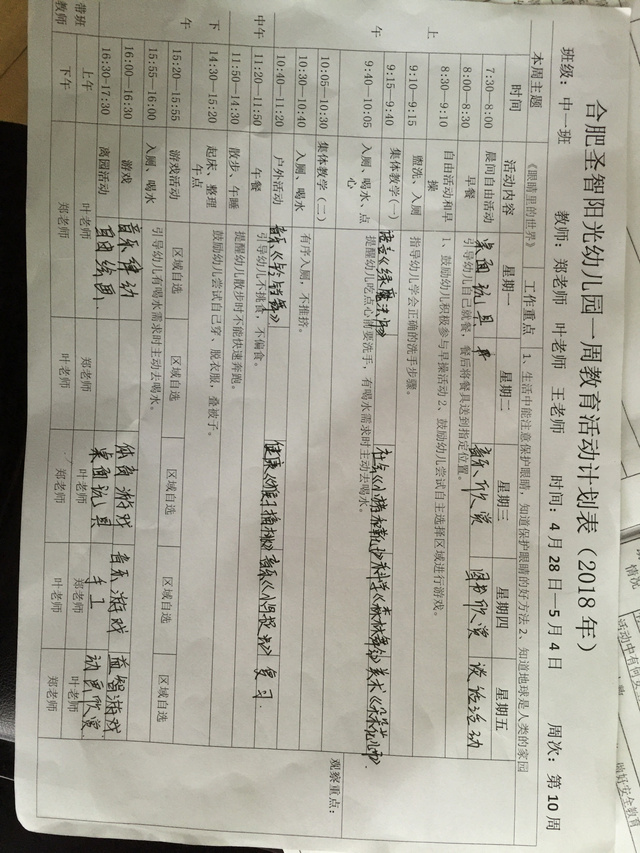 合肥圣智阳光幼儿园一周教育活动计划表（2018 年）
班级：中一班 教师：郑老师 叶老师 王老师 时间：4 月 28 日—5 月 4 日 周次：第 10 周
本周主题 《眼睛里的世界》 工作重点 1、生活中能注意保护眼睛，知道保护眼睛的好方法 2、知道地球是人类的家园
时间 活动内容 星期一 星期二 星期三 星期四 星期五
上午
7:30—8:00 晨间自由活动 桌面玩具 音乐欣赏 图书欣赏 谈话活动
8:00—8:30 早餐 引导幼儿自己就餐，餐后将餐具送到指定位置。
8:30—9:10 自由活动和早操 1、鼓励幼儿积极参与早操活动 2、鼓励幼儿尝试自主选择区域进行游戏。
9:10—9:15 盥洗、入厕 指导幼儿学会正确的洗手步骤。
9:15—9:40 集体教学（一） 语言《绿魔法师》
9:40—10:05 入厕、喝水、点心 提醒幼儿吃点心前要洗手，有喝水需求时主动去喝水。
10:05—10:30 集体教学（二）
10:30—10:40 入厕、喝水 有序入厕，不推挤。
10:40—11:20 户外活动 复习
中午
11:20—11:50 午餐 引导幼儿不挑食，不偏食。
11:50—14:30 散步、午睡 提醒幼儿散步时不能快速奔跑。
下午
14:30—15:20 起床、整理午点 鼓励幼儿尝试自己穿、脱衣服，叠被子。
15:20—15:55 游戏活动 区域自选 区域自选 区域自选 区域自选 区域自选
15:55—16:00 入厕、喝水 引导幼儿有喝水需求时主动去喝水。
16:00—16:30 游戏 音乐律动 体育游戏 音乐游戏 益智游戏
16:30-17:30 离园活动 自由绘画 桌面玩具 手工 动画欣赏
带班教师 上午 叶老师 郑老师 叶老师 郑老师 叶老师
下午 郑老师 叶老师 郑老师 叶老师 郑老师
观察重点：